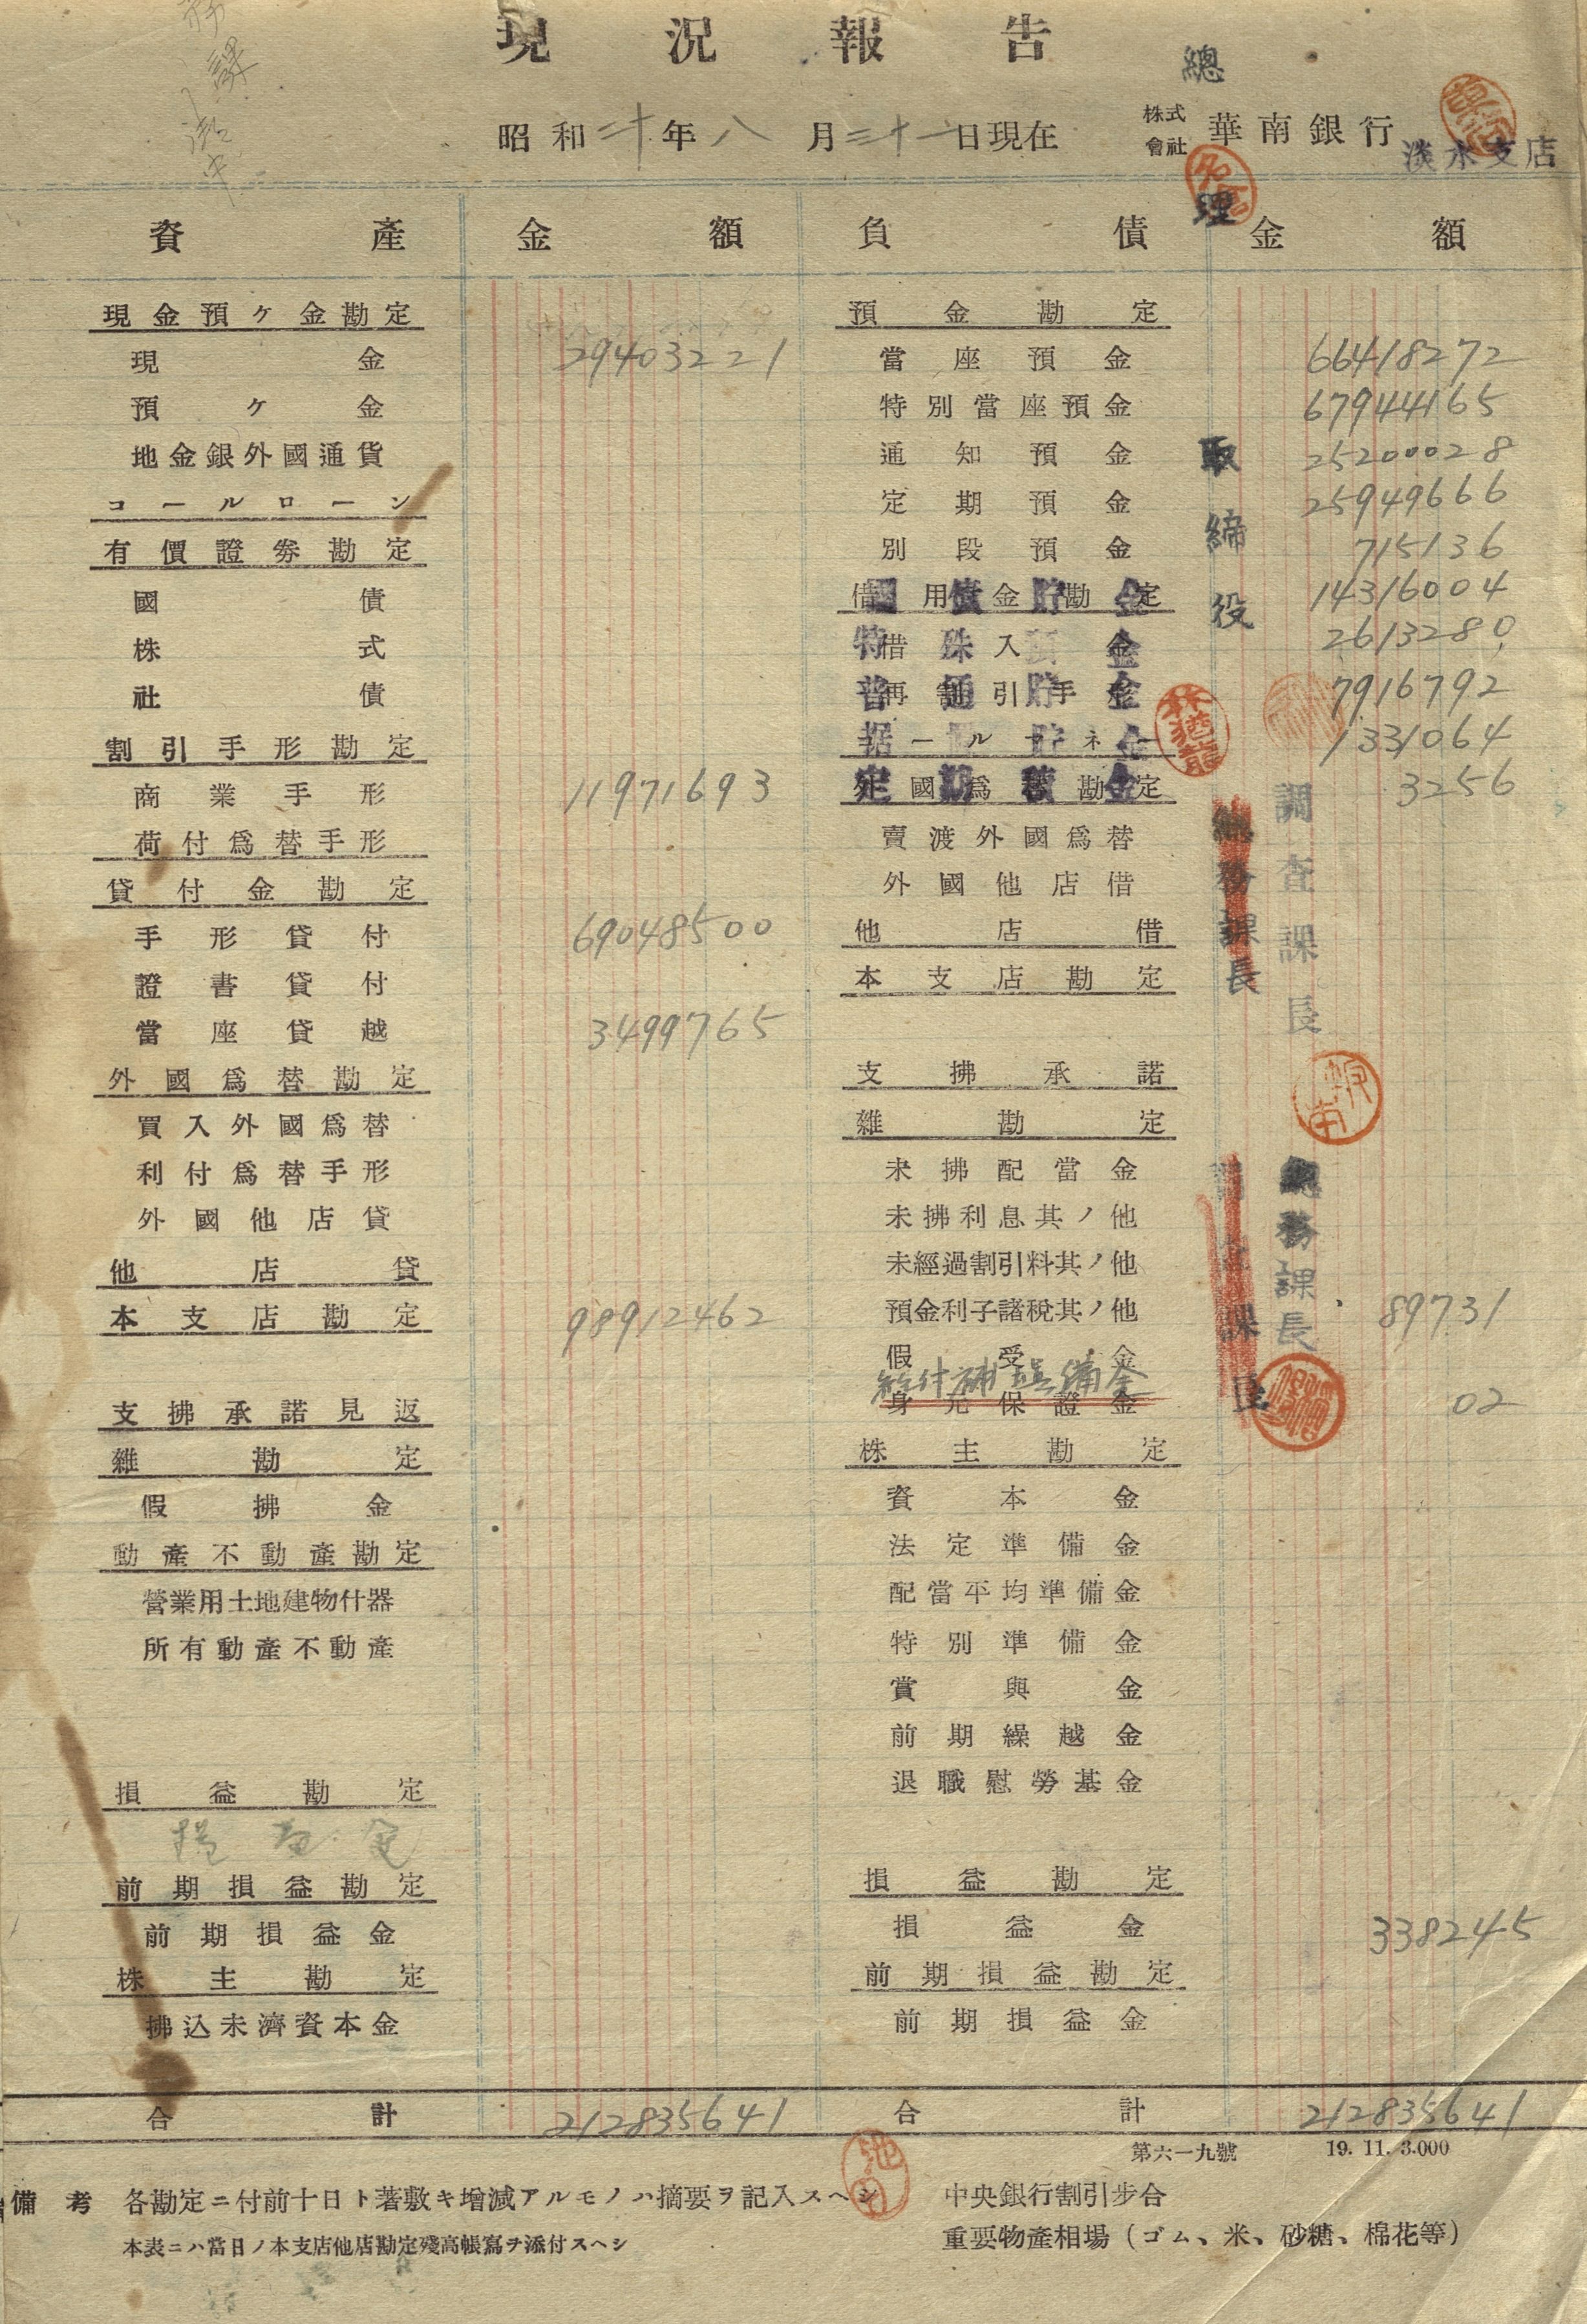 現況報告
昭和二十年八月三十一日現在
株式會社 華南銀行 淡水支店
總
理
取
締
役
資產 金額 負債 金額
現金預ケ金勘定
現金 29403221
預ケ金
地金銀外國通貨
コールローン
有價證券勘定
國債
株式
社債
割引手形勘定
商業手形 11971693
荷付爲替手形
貸付金勘定
手形貸付 69048500
證書貸付
當座貸越 3499765
外國爲替勘定
買入外國爲替
利付爲替手形
外國他店貸
他店貸
本支店勘定 98912462
支拂承諾見返
雜勘定
假拂金
動產不動產勘定
營業用土地建物什器
所有動產不動產
損益勘定
損益金
前期損益勘定
前期損益金
株主勘定
拂込未濟資本金
合計 212835641
預金勘定
當座預金 66418272
特別當座預金 67944165
通知預金 25200028
定期預金 25949666
別段預金 715136
借用金勘定 國債貯金 14316004
借入金 特殊預金 2613280
再割引手形 普通貯金 7916792
コールマネー 据置貯金 1331064
外國爲替勘定 定期積金 3256
賣渡外國爲替
外國他店借
他店借
本支店勘定
支拂承諾
雜勘定
未拂配當金
未拂利息其ノ他
未經過割引料其ノ他
預金利子諸稅其ノ他 89731
假受金
身元保證金 02
株主勘定
資本金
法定準備金
配當平均準備金
特別準備金
賞與金
前期繰越金
退職慰勞基金
損益勘定
損益金 338245
前期損益勘定
前期損益金
合計 212835641
林猶龍
總務課長
調查課長
總務課長
課長
第六一九號 19. 11. 3.000
池田
備考 各勘定ニ付前十日ト著敷キ增減アルモノハ摘要ヲ記入スヘシ
本表ニハ當日ノ本支店他店勘定殘高帳寫ヲ添付スヘシ
中央銀行割引步合
重要物產相場（ゴム、米、砂糖、棉花等）